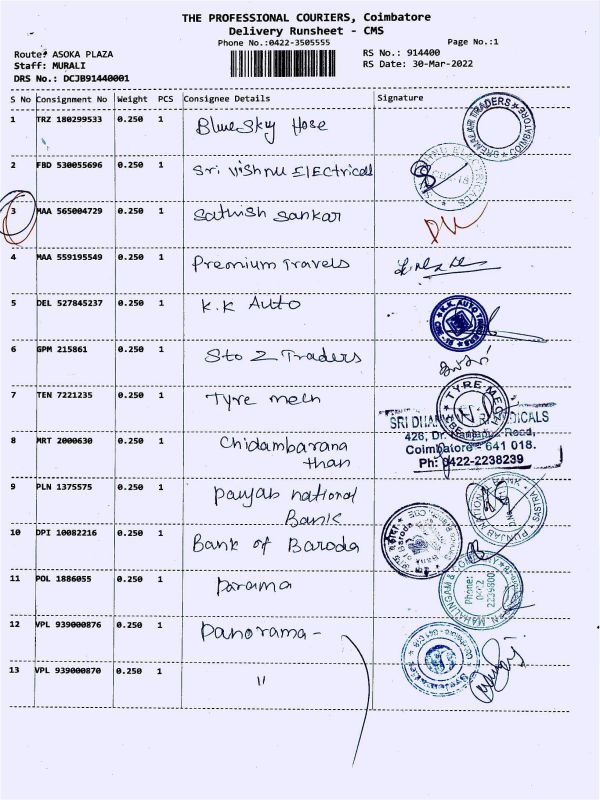 THE PROFESSIONAL COURIERS, Coimbatore
Delivery Runsheet - CMS
Phone No.:0422-3505555 Page No.:1
Route: ASOKA PLAZA RS No.: 914400
Staff: MURALI RS Date: 30-Mar-2022
DRS No.: DCJB91440001
S No Consignment No Weight PCS Consignee Details Signature
1 TRZ 180299533 0.250 1 Blue Sky Hose
2 FBD 530055696 0.250 1 Sri Vishnu Electricals
3 MAA 565004729 0.250 1 Sathish Sankar
4 MAA 559195549 0.250 1 Premium Travels
5 DEL 527845237 0.250 1 K.K Auto
6 GPM 215861 0.250 1 S to Z Traders
7 TEN 7221235 0.250 1 Tyre mech
SRI DICALS
428, Dr. Road,
8 MRT 2000630 0.250 1 Chidambarana
than
Coimbatore - 641 018.
Ph: 0422-2238239
9 PLN 1375575 0.250 1 Panjab national
Bank
10 DPI 10082216 0.250 1 Bank of Baroda
11 POL 1886055 0.250 1 Parama
MAHALINGAM &
Phone:
0422
2239800
12 VPL 939000876 0.250 1 Panorama -
13 VPL 939000870 0.250 1 "